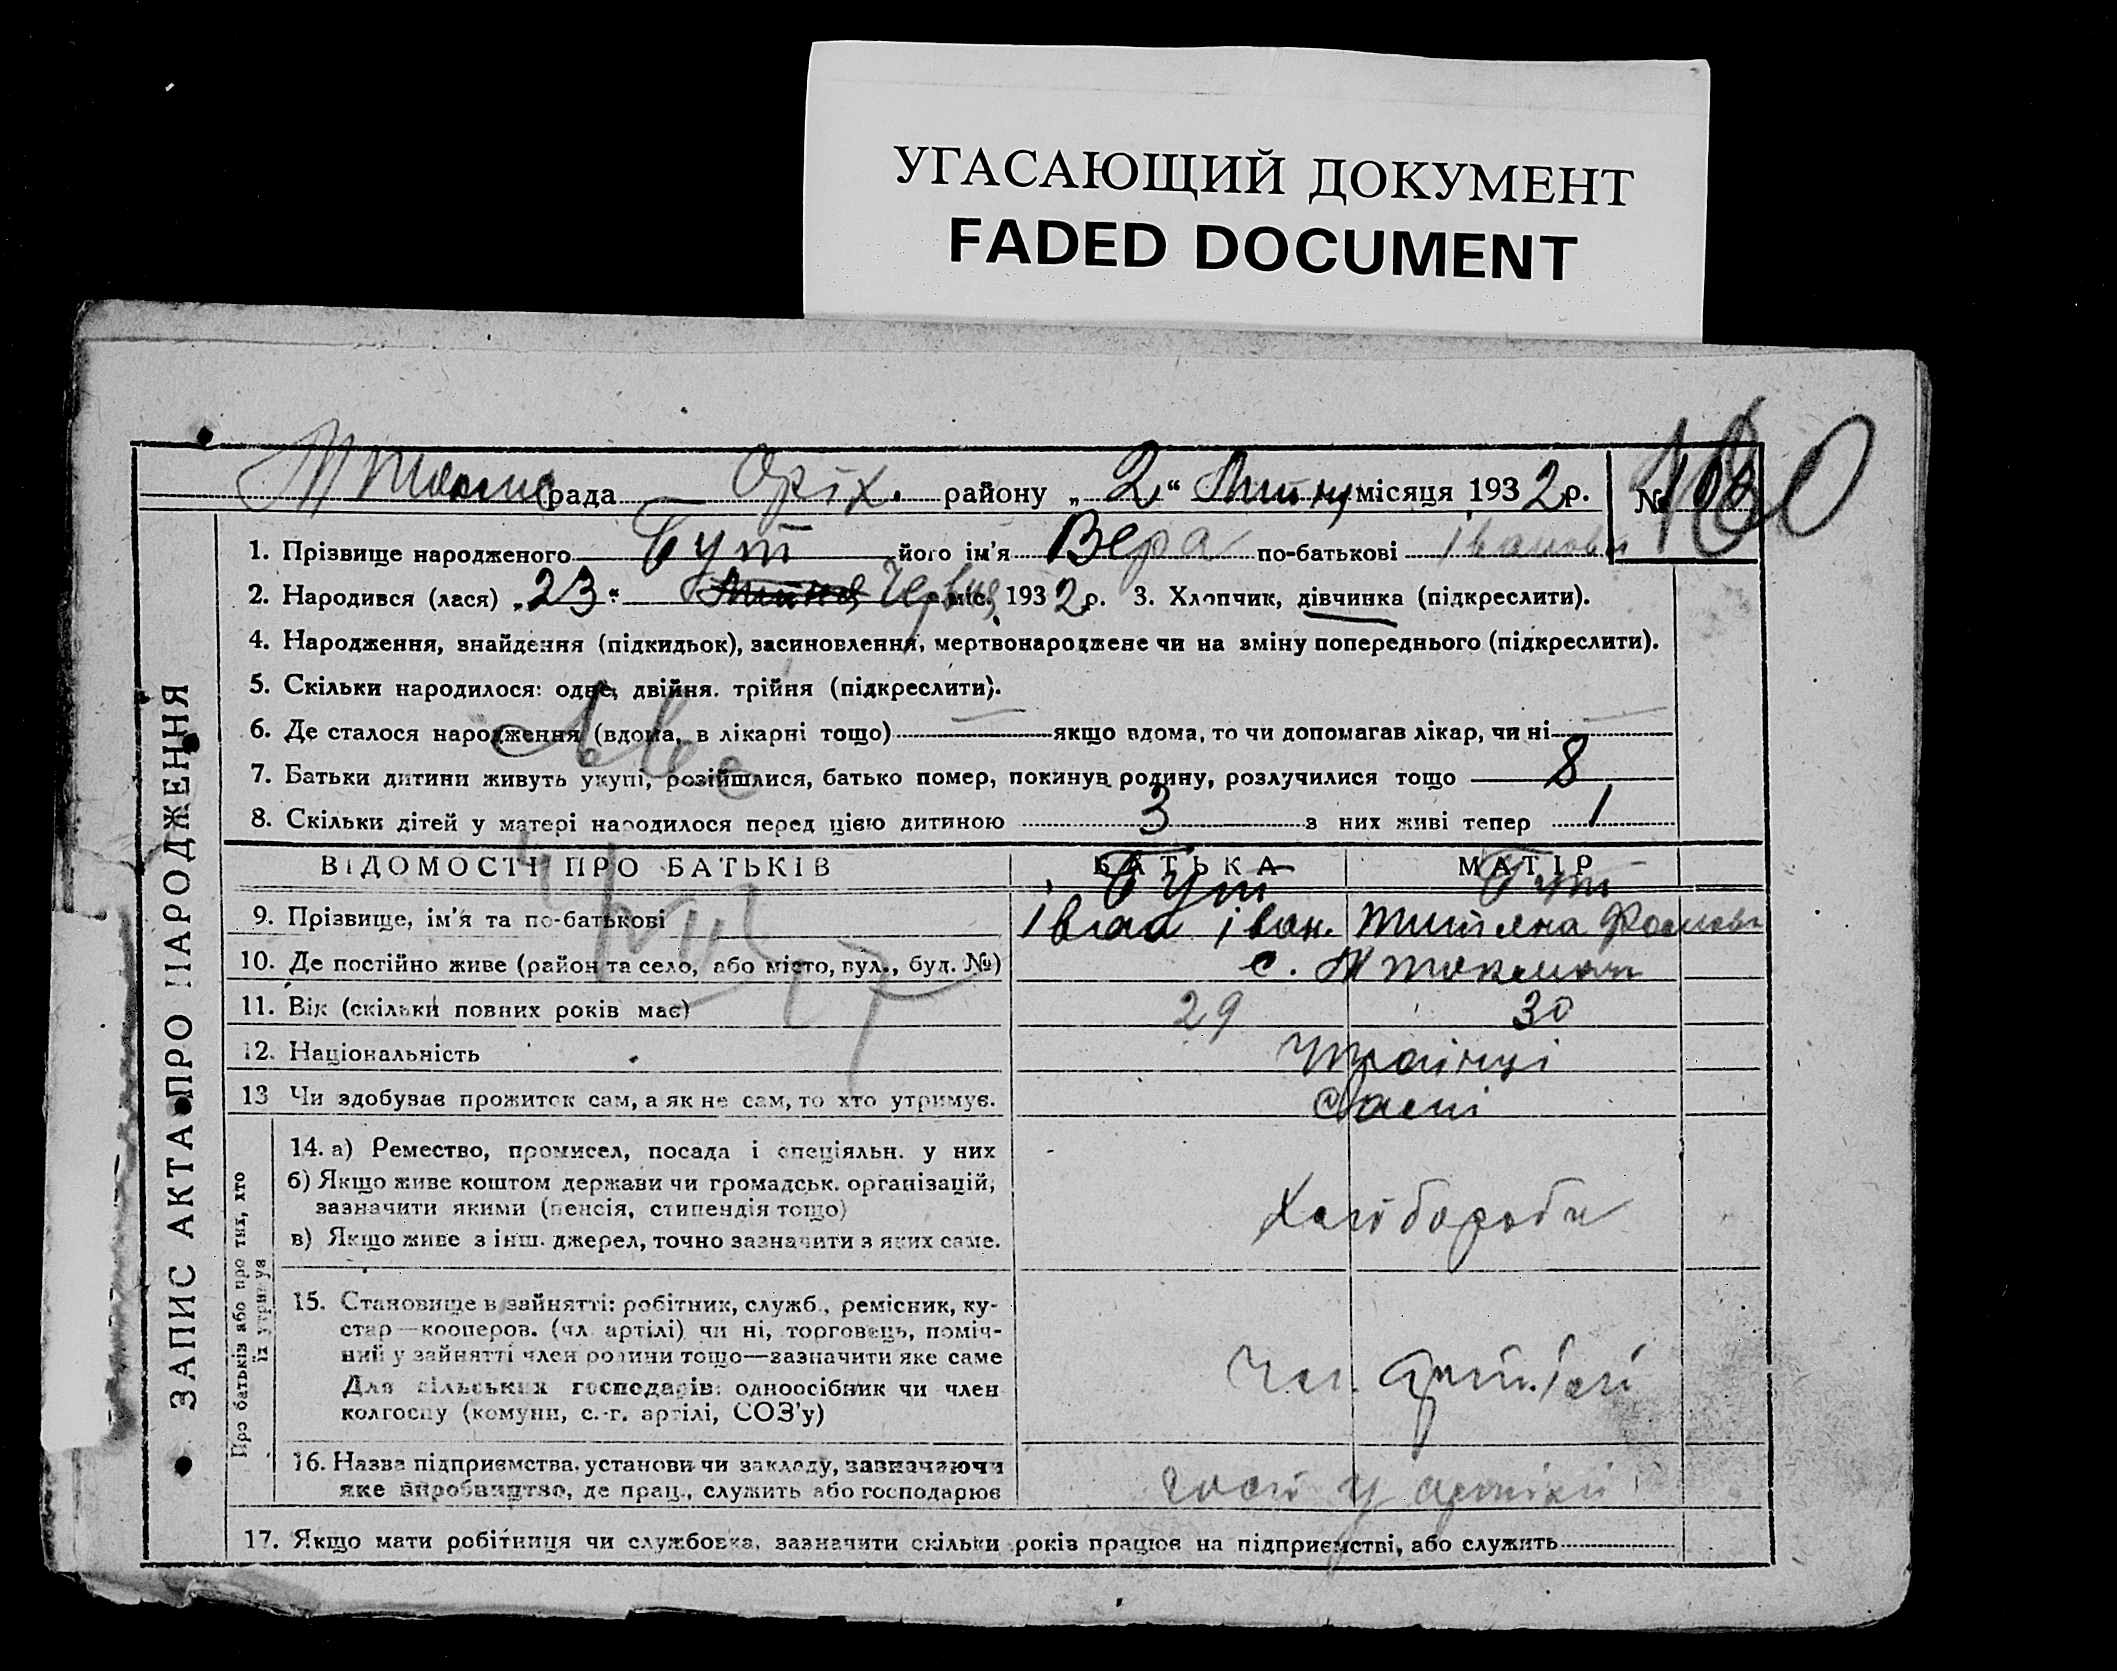 УГАСАЮЩИЙ ДОКУМЕНТ
FADED DOCUMENT
рада Оріх. району „2“ Липня місяця 1932 р. №
1. Прізвище народженого Бут його ім'я Вера по-батькові Іванов
2. Народився (лася) „23“ Липня Червня міс. 1932 р. 3. Хлопчик, дівчинка (підкреслити).
4. Народження, знайдення (підкидьок), засиновлення, мертвонароджене чи на зміну попереднього (підкреслити).
5. Скільки народилося: одне, двійня. трійня (підкреслити).
6. Де сталося народження (вдома, в лікарні тощо) якщо вдома, то чи допомагав лікар, чи ні
7. Батьки дитини живуть укупі, розійшлися, батько помер, покинув родину, розлучилися тощо 8
8. Скільки дітей у матері народилося перед цією дитиною 3 з них живі тепер 1
ВІДОМОСТІ ПРО БАТЬКІВ БАТЬКА МАТІР
Бут Бут
9. Прізвище, ім'я та по-батькові Іван Іван. Титяна
10. Де постійно живе (район та село, або місто, вул., буд. №) с. М Токмак
11. Вік (скільки повних років має) 29 30
12. Національність Україньці
13 Чи здобував прожиток сам, а як не сам, то хто утримує.
ЗАПИС АКТА ПРО НАРОДЖЕННЯ
Про батьків або про тих, хто
їх утримує
14. а) Ремество, промисел, посада і спеціяльн. у них
б) Якщо живе коштом держави чи громадськ. організацій,
зазначити якими (пенсія, стипендія тощо)
в) Якщо живе з інш. джерел, точно зазначити з яких саме.
Хліборобн
15. Становище в зайнятті: робітник, служб., ремісник, ку-
стар—кооперов. (чл. артілі) чи ні, торговець, поміч-
ний у зайнятті член родини тощо—зазначити яке саме
Для сільських господарів: одноосібник чи член
колгоспу (комуни, с.-г. артілі, СОЗ'у)
Чл. артілі
16. Назва підприємства, установи чи закладу, зазначаючи
яке виробництво, де прац., служить або господарює
у артілі
17. Якщо мати робітниця чи службовка, зазначити скільки років працює на підприємстві, або служить